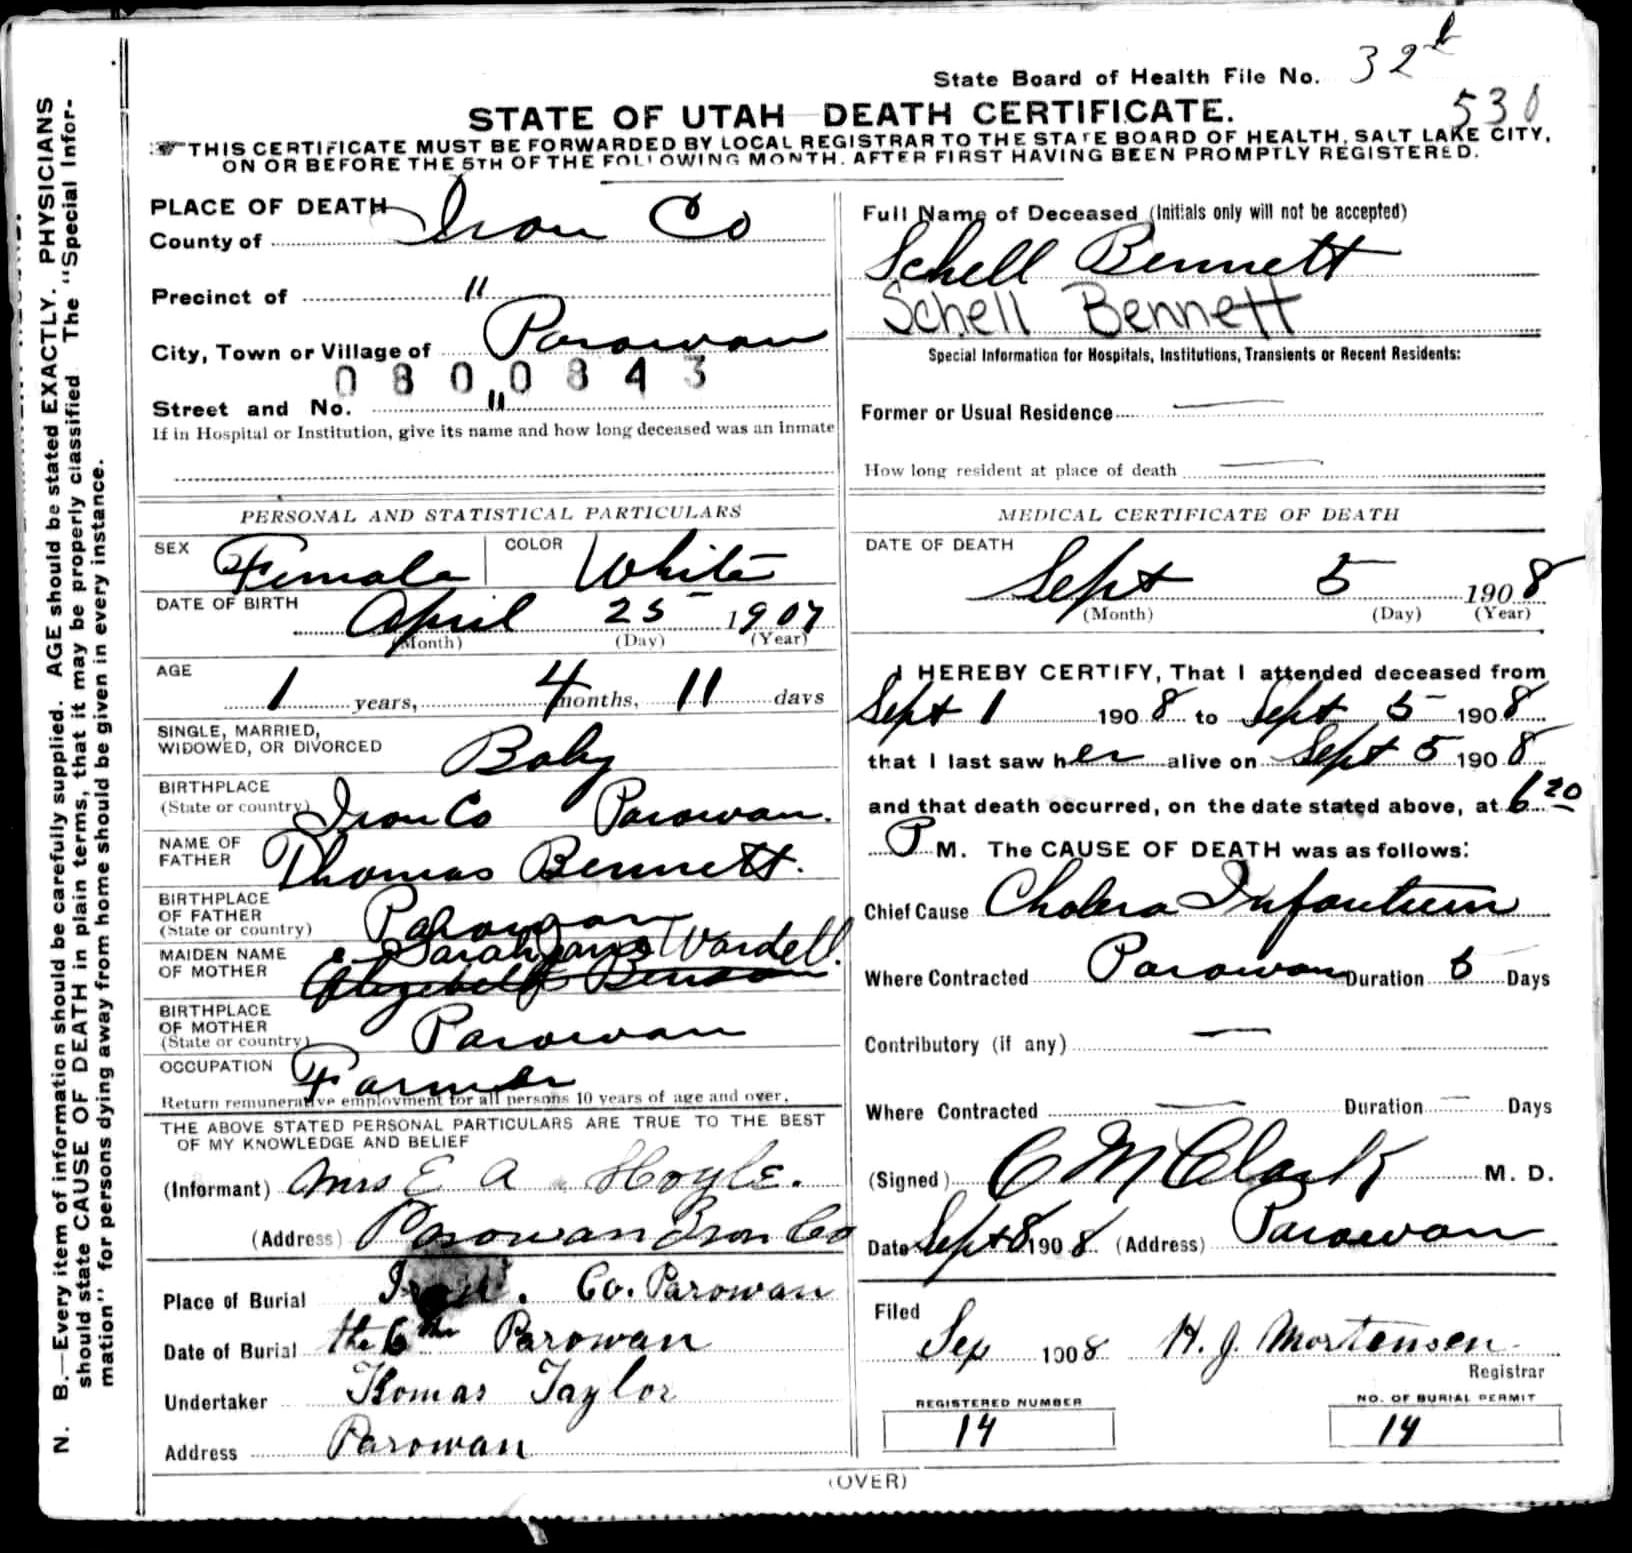 State Board of Health File No. 32
530
STATE OF UTAH DEATH CERTIFICATE.
THIS CERTIFICATE MUST BE FORWARDED BY LOCAL REGISTRAR TO THE STATE BOARD OF HEALTH, SALT LAKE CITY,
ON OR BEFORE THE 5TH OF THE FOLLOWING MONTH. AFTER FIRST HAVING BEEN PROMPTLY REGISTERED.
N. B.—Every item of information should be carefully supplied. AGE should be stated EXACTLY. PHYSICIANS
should state CAUSE OF DEATH in plain terms, that it may be properly classified The "Special Infor-
mation" for persons dying away from home should be given in every instance.
PLACE OF DEATH
County of Iron Co
Precinct of "
City, Town or Village of Parowan
0 8 0 0 8 4 3
Street and No. "
If in Hospital or Institution, give its name and how long deceased was an inmate
PERSONAL AND STATISTICAL PARTICULARS
SEX Female COLOR White
DATE OF BIRTH April 25 1907
(Month) (Day) (Year)
AGE
1 years, 4 months, 11 days
SINGLE, MARRIED,
WIDOWED, OR DIVORCED Baby
BIRTHPLACE
(State or country) Iron Co Parowan.
NAME OF
FATHER Thomas Bennett.
BIRTHPLACE
OF FATHER
(State or country) Parowan
MAIDEN NAME
OF MOTHER Sarah Jane Wardell.
BIRTHPLACE
OF MOTHER
(State or country) Parowan
OCCUPATION Farmer
Return remunerative employment for all persons 10 years of age and over.
THE ABOVE STATED PERSONAL PARTICULARS ARE TRUE TO THE BEST
OF MY KNOWLEDGE AND BELIEF
(Informant) Mrs E A Hoyle.
(Address) Parowan Iron Co
Place of Burial Iron. Co. Parowan
Date of Burial the 6th Parowan
Undertaker Thomas Taylor
Address Parowan
Full Name of Deceased (Initials only will not be accepted)
Schell Bennett
Schell Bennett
Special Information for Hospitals, Institutions, Transients or Recent Residents:
Former or Usual Residence —
How long resident at place of death —
MEDICAL CERTIFICATE OF DEATH
DATE OF DEATH
Sept 5 1908
(Month) (Day) (Year)
I HEREBY CERTIFY, That I attended deceased from
Sept 1 1908 to Sept 5 1908
that I last saw her alive on Sept 5 1908
and that death occurred, on the date stated above, at 6 20
P M. The CAUSE OF DEATH was as follows:
Chief Cause Cholera Infantum
Where Contracted Parowan Duration 5 Days
Contributory (if any) —
Where Contracted — Duration — Days
(Signed) C M Clark M. D.
Date Sept 8 1908 (Address) Parowan
Filed
Sep 1908 H. J. Mortensen
Registrar
REGISTERED NUMBER
14
NO. OF BURIAL PERMIT
14
(OVER)